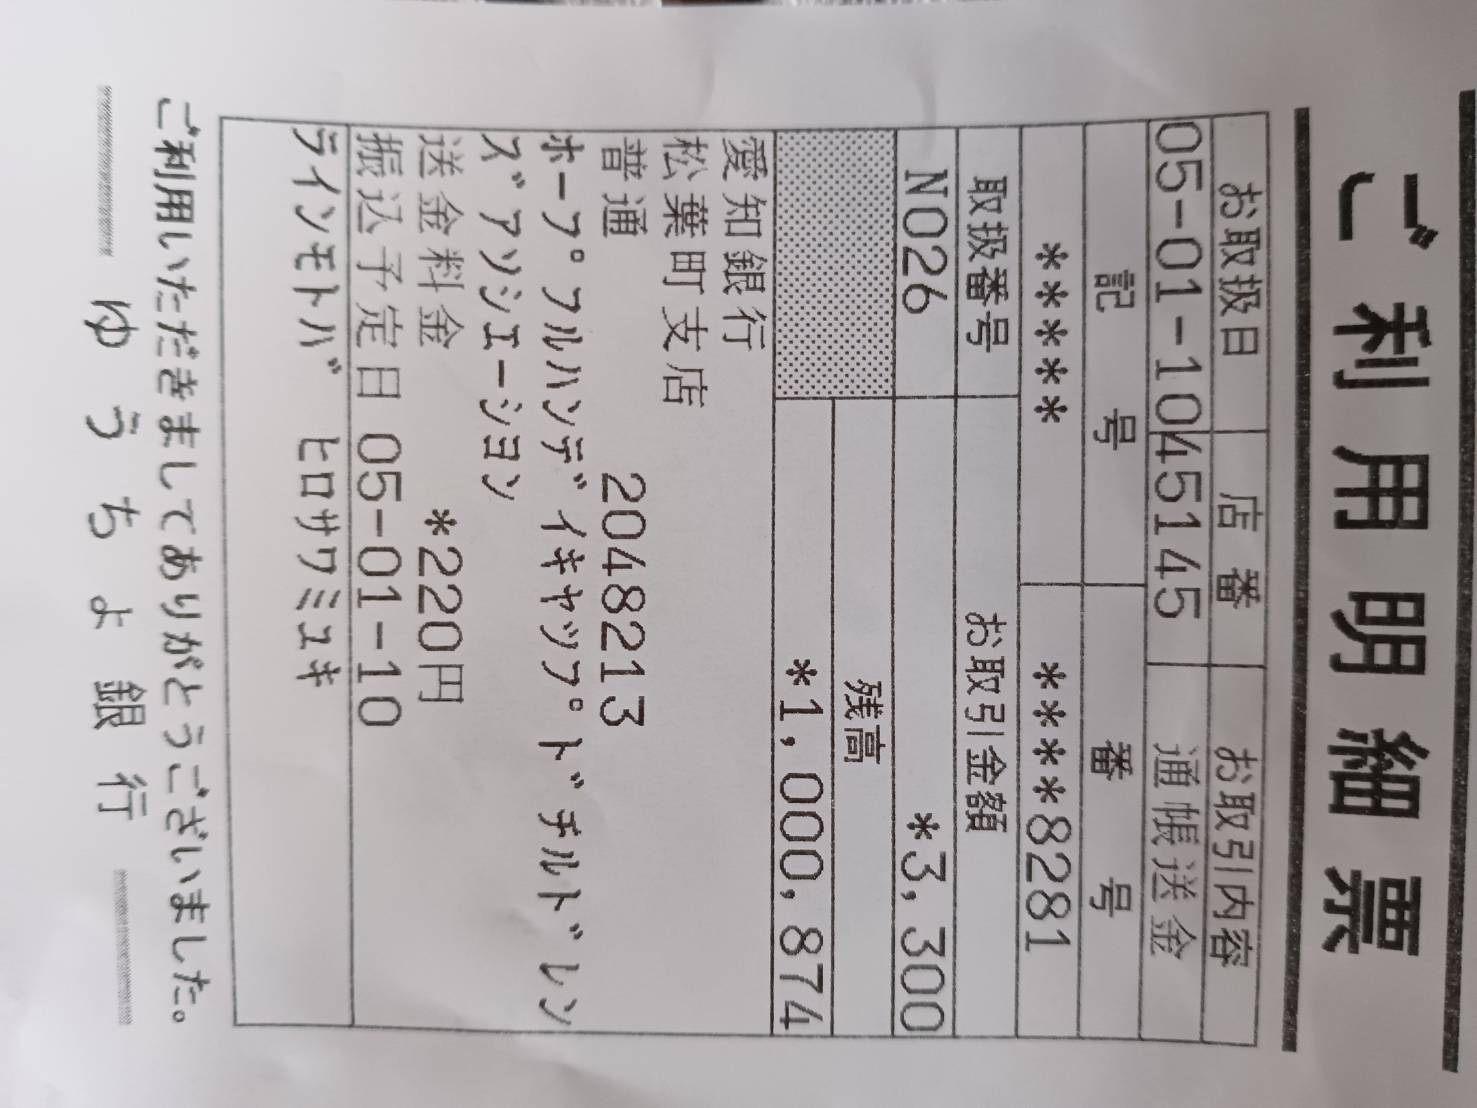 ご利用明細票
お取扱日 店番 お取引内容
05-01-10 45145 通帳送金
記号 番号
***** ****8281
取扱番号 お取引金額
N026 *3,300
残高
*1,000,874
愛知銀行
松葉町支店
普通 2048213
ﾎｰﾌﾟﾌﾙﾊﾝﾃﾞｲｷﾔﾂﾌﾟﾄﾞﾁﾙﾄﾞﾚﾝ
ｽﾞｱｿｼｴｰｼﾖﾝ
送金料金 *220円
振込予定日 05-01-10
ﾗｲﾝﾓﾄﾊﾞ ﾋﾛｻﾜﾐﾕｷ
ご利用いただきましてありがとうございました。
ゆうちょ銀行